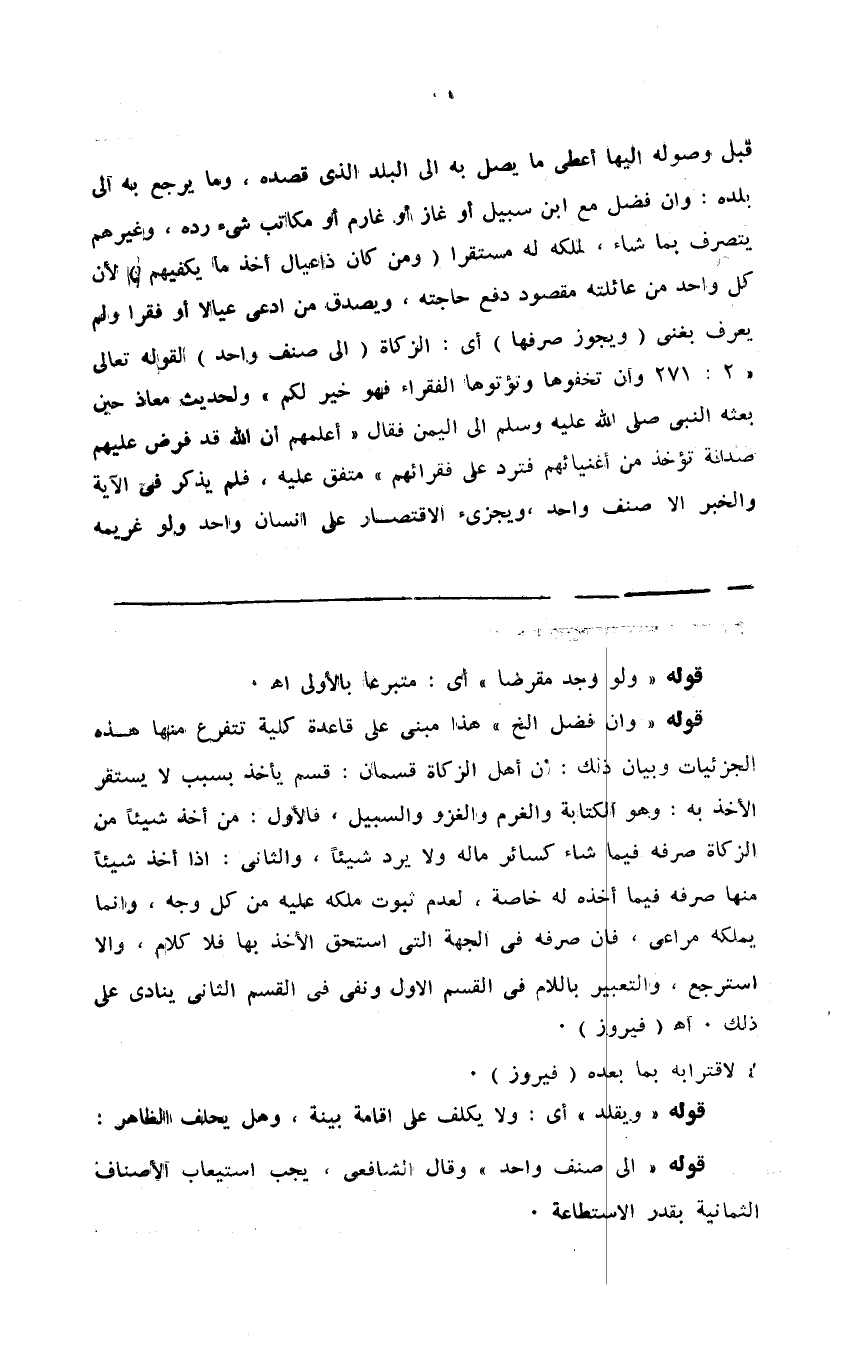 قبل وصوله اليها أعطى ما يصل به الى البلد الذى قصده ، وما يرجع به الى
بلده : وان فضل مع ابن سبيل أو غاز أو غارم أو مكاتب شىء رده ، وغيرهم
يتصرف بما شاء ، لملكه له مستقرا ( ومن كان ذاعيال أخذ ما يكفيهم ) لأن
كل واحد من عائلته مقصود دفع حاجته ، ويصدق من ادعى عيالا أو فقرا ولم
يعرف بغنى ( ويجوز صرفها ) أى : الزكاة ( الى صنف واحد ) القوله تعالى
« ٢ : ٢٧١ وان تخفوها وتؤتوها الفقراء فهو خير لكم » ولحديث معاذ حين
بعثه النبى صلى الله عليه وسلم الى اليمن فقال « أعلمهم أن الله قد فرض عليهم
صدقة تؤخذ من أغنيائهم فترد على فقرائهم » متفق عليه ، فلم يذكر فى الآية
والخبر الا صنف واحد ،ويجزىء الاقتصار على انسان واحد ولو غريمه
قوله « ولو وجد مقرضا » أى : متبرعا بالأولى اهـ ٠
قوله « وان فضل الخ » هذا مبنى على قاعدة كلية تتفرع منها هذه
الجزئيات وبيان ذلك : أن أهل الزكاة قسمان : قسم يأخذ بسبب لا يستقر
الأخذ به : وهو الكتابة والغرم والغزو والسبيل ، فالأول : من أخذ شيئاً من
الزكاة صرفه فيما شاء كسائر ماله ولا يرد شيئاً ، والثانى : اذا أخذ شيئاً
منها صرفه فيما أخذه له خاصة ، لعدم ثبوت ملكه عليه من كل وجه ، وانما
يملكه مراعى ، فان صرفه فى الجهة التى استحق الأخذ بها فلا كلام ، والا
استرجع ، والتعبير باللام فى القسم الاول ونفى فى القسم الثانى ينادى على
ذلك ٠ اهـ ( فيروز ) ٠
لاقترابه بما بعده ( فيروز ) ٠
قوله « ويقلد » أى : ولا يكلف على اقامة بينة ، وهل يحلف الظاهر :
قوله « الى صنف واحد » وقال الشافعى ، يجب استيعاب الأصناف
الثمانية بقدر الاستطاعة ٠